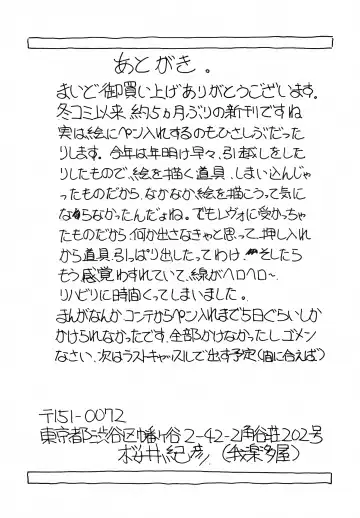 あとがき。
まいど御買い上げありがとうございます。
冬コミ以来、約5ヵ月ぶりの新刊ですね
実は絵にペン入れするのもひさしぶりだった
りします。今年は年明け早々、引越しをした
りしたもので、絵を描く道具、しまい込んじゃ
ったものだから、なかなか絵を描こうって気に
ならなかったんだよね。でもレヴォに受かっちゃ
たものだから、何か出さなきゃと思って、押し入れ
から道具、引っぱり出したってわけ。そしたら
もう感覚わすれていて、線がヘロヘロ~。
リハビリに時間くってしまいました。
まんがなんかコンテからペン入れまで5日ぐらいしか
かけられなかったです。全部かけなかったし、ゴメン
なさい、次はラストキャッスルで出す予定(間に合えば)
〒151-0072
東京都渋谷区幡ヶ谷2-42-2角谷荘202号
桜井紀彦(我楽多屋)